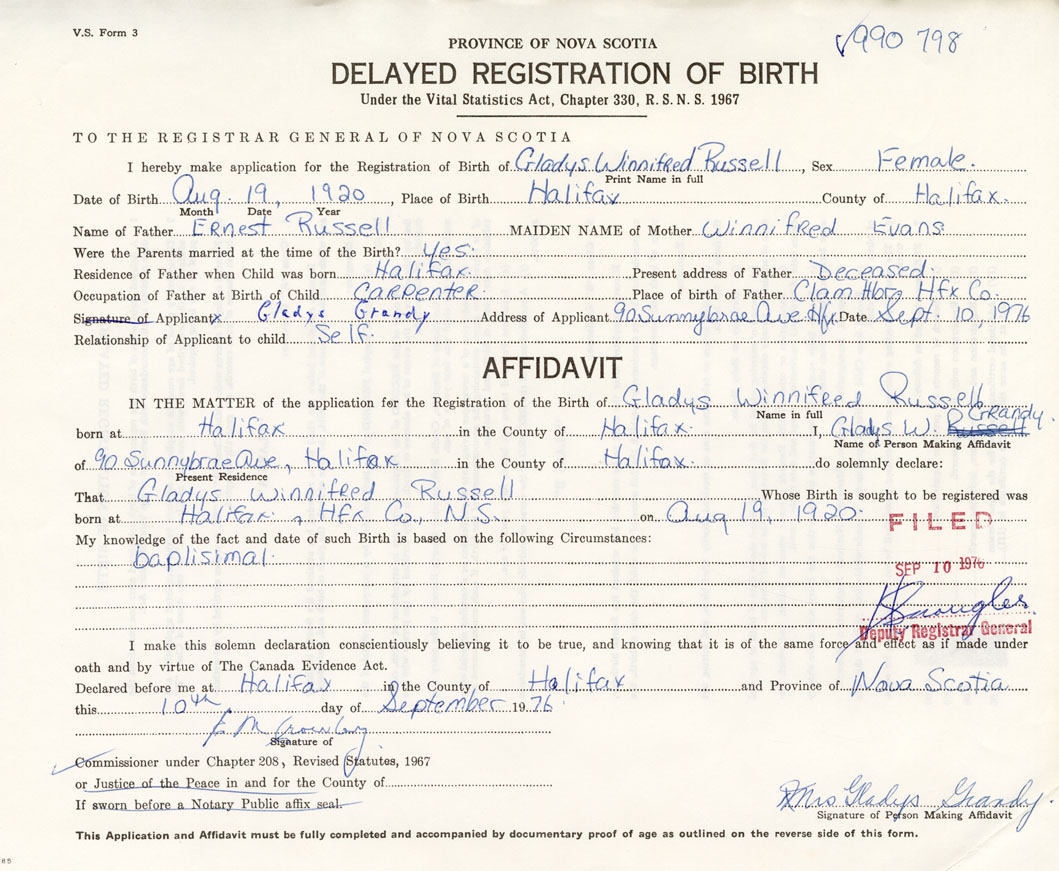 V.S. Form 3
990 798
PROVINCE OF NOVA SCOTIA
DELAYED REGISTRATION OF BIRTH
Under the Vital Statistics Act, Chapter 330, R. S. N. S. 1967
TO THE REGISTRAR GENERAL OF NOVA SCOTIA
I hereby make application for the Registration of Birth of Gladys Winnifred Russell, Sex Female.
Print Name in full
Date of Birth Aug. 19, 1920, Place of Birth Halifax County of Halifax.
Month Date Year
Name of Father Ernest Russell MAIDEN NAME of Mother Winnifred Evans
Were the Parents married at the time of the Birth? yes.
Residence of Father when Child was born Halifax. Present address of Father Deceased.
Occupation of Father at Birth of Child Carpenter. Place of birth of Father Clam Hbr. Hfx Co.
Signature of Applicant x Gladys Grandy Address of Applicant 90 Sunnybrae Ave Hfx Date Sept. 10, 1976
Relationship of Applicant to child Self.
AFFIDAVIT
IN THE MATTER of the application for the Registration of the Birth of Gladys Winnifred Russell
Name in full
Grandy.
born at Halifax in the County of Halifax. I, Gladys W. Russell
Name of Person Making Affidavit
of 90 Sunnybrae Ave, Halifax in the County of Halifax. do solemnly declare:
Present Residence
That Gladys Winnifred Russell Whose Birth is sought to be registered was
born at Halifax, Hfx Co., N.S. on Aug 19, 1920.
FILED
My knowledge of the fact and date of such Birth is based on the following Circumstances:
baplisimal.
SEP 10 1976
Deputy Registrar General
I make this solemn declaration conscientiously believing it to be true, and knowing that it is of the same force and effect as if made under
oath and by virtue of The Canada Evidence Act.
Declared before me at Halifax in the County of Halifax and Province of Nova Scotia
this 10th day of September 1976.
Signature of
Commissioner under Chapter 208, Revised Statutes, 1967
or Justice of the Peace in and for the County of
If sworn before a Notary Public affix seal.
Mrs Gladys Grandy.
Signature of Person Making Affidavit
This Application and Affidavit must be fully completed and accompanied by documentary proof of age as outlined on the reverse side of this form.